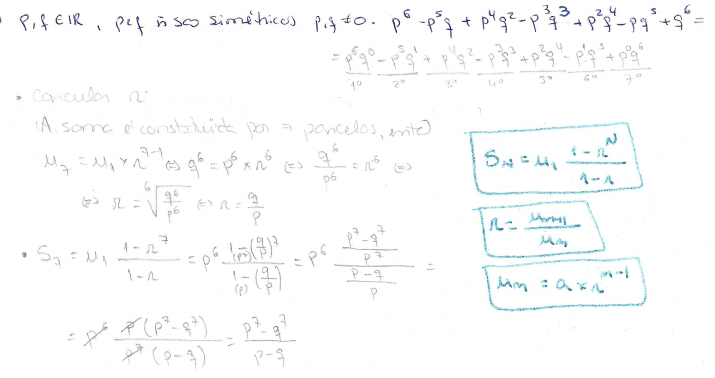 p,q ∈ IR, p e q ñ são simétricos p,q ≠ 0. p⁶ - p⁵q + p⁴q² - p³q³ + p²q⁴ - pq⁵ + q⁶ =
= p⁶q⁰ - p⁵q¹ + p⁴q² - p³q³ + p²q⁴ - p¹q⁵ + p⁰q⁶
1º 2º 3º 4º 5º 6º 7º
• Calcular r:
A soma é constituída por 7 parcelas, então
u₇ = u₁ × r⁷⁻¹ (=) q⁶ = p⁶ × r⁶ (=) q⁶/p⁶ = r⁶ (=)
(=) r = ⁶√(q⁶/p⁶) (=) r = q/p
• S₇ = u₁ (1 - r⁷)/(1 - r) = p⁶ (1 - (q/p)⁷)/(1 - (q/p)) = p⁶ ((p⁷ - q⁷)/p⁷)/((p - q)/p) =
= p⁶ p(p⁷ - q⁷)/(p⁷(p - q)) = (p⁷ - q⁷)/(p - q)
S_N = u₁ (1 - r^N)/(1 - r)
r = u_{n+1}/u_n
u_n = a × r^{n-1}